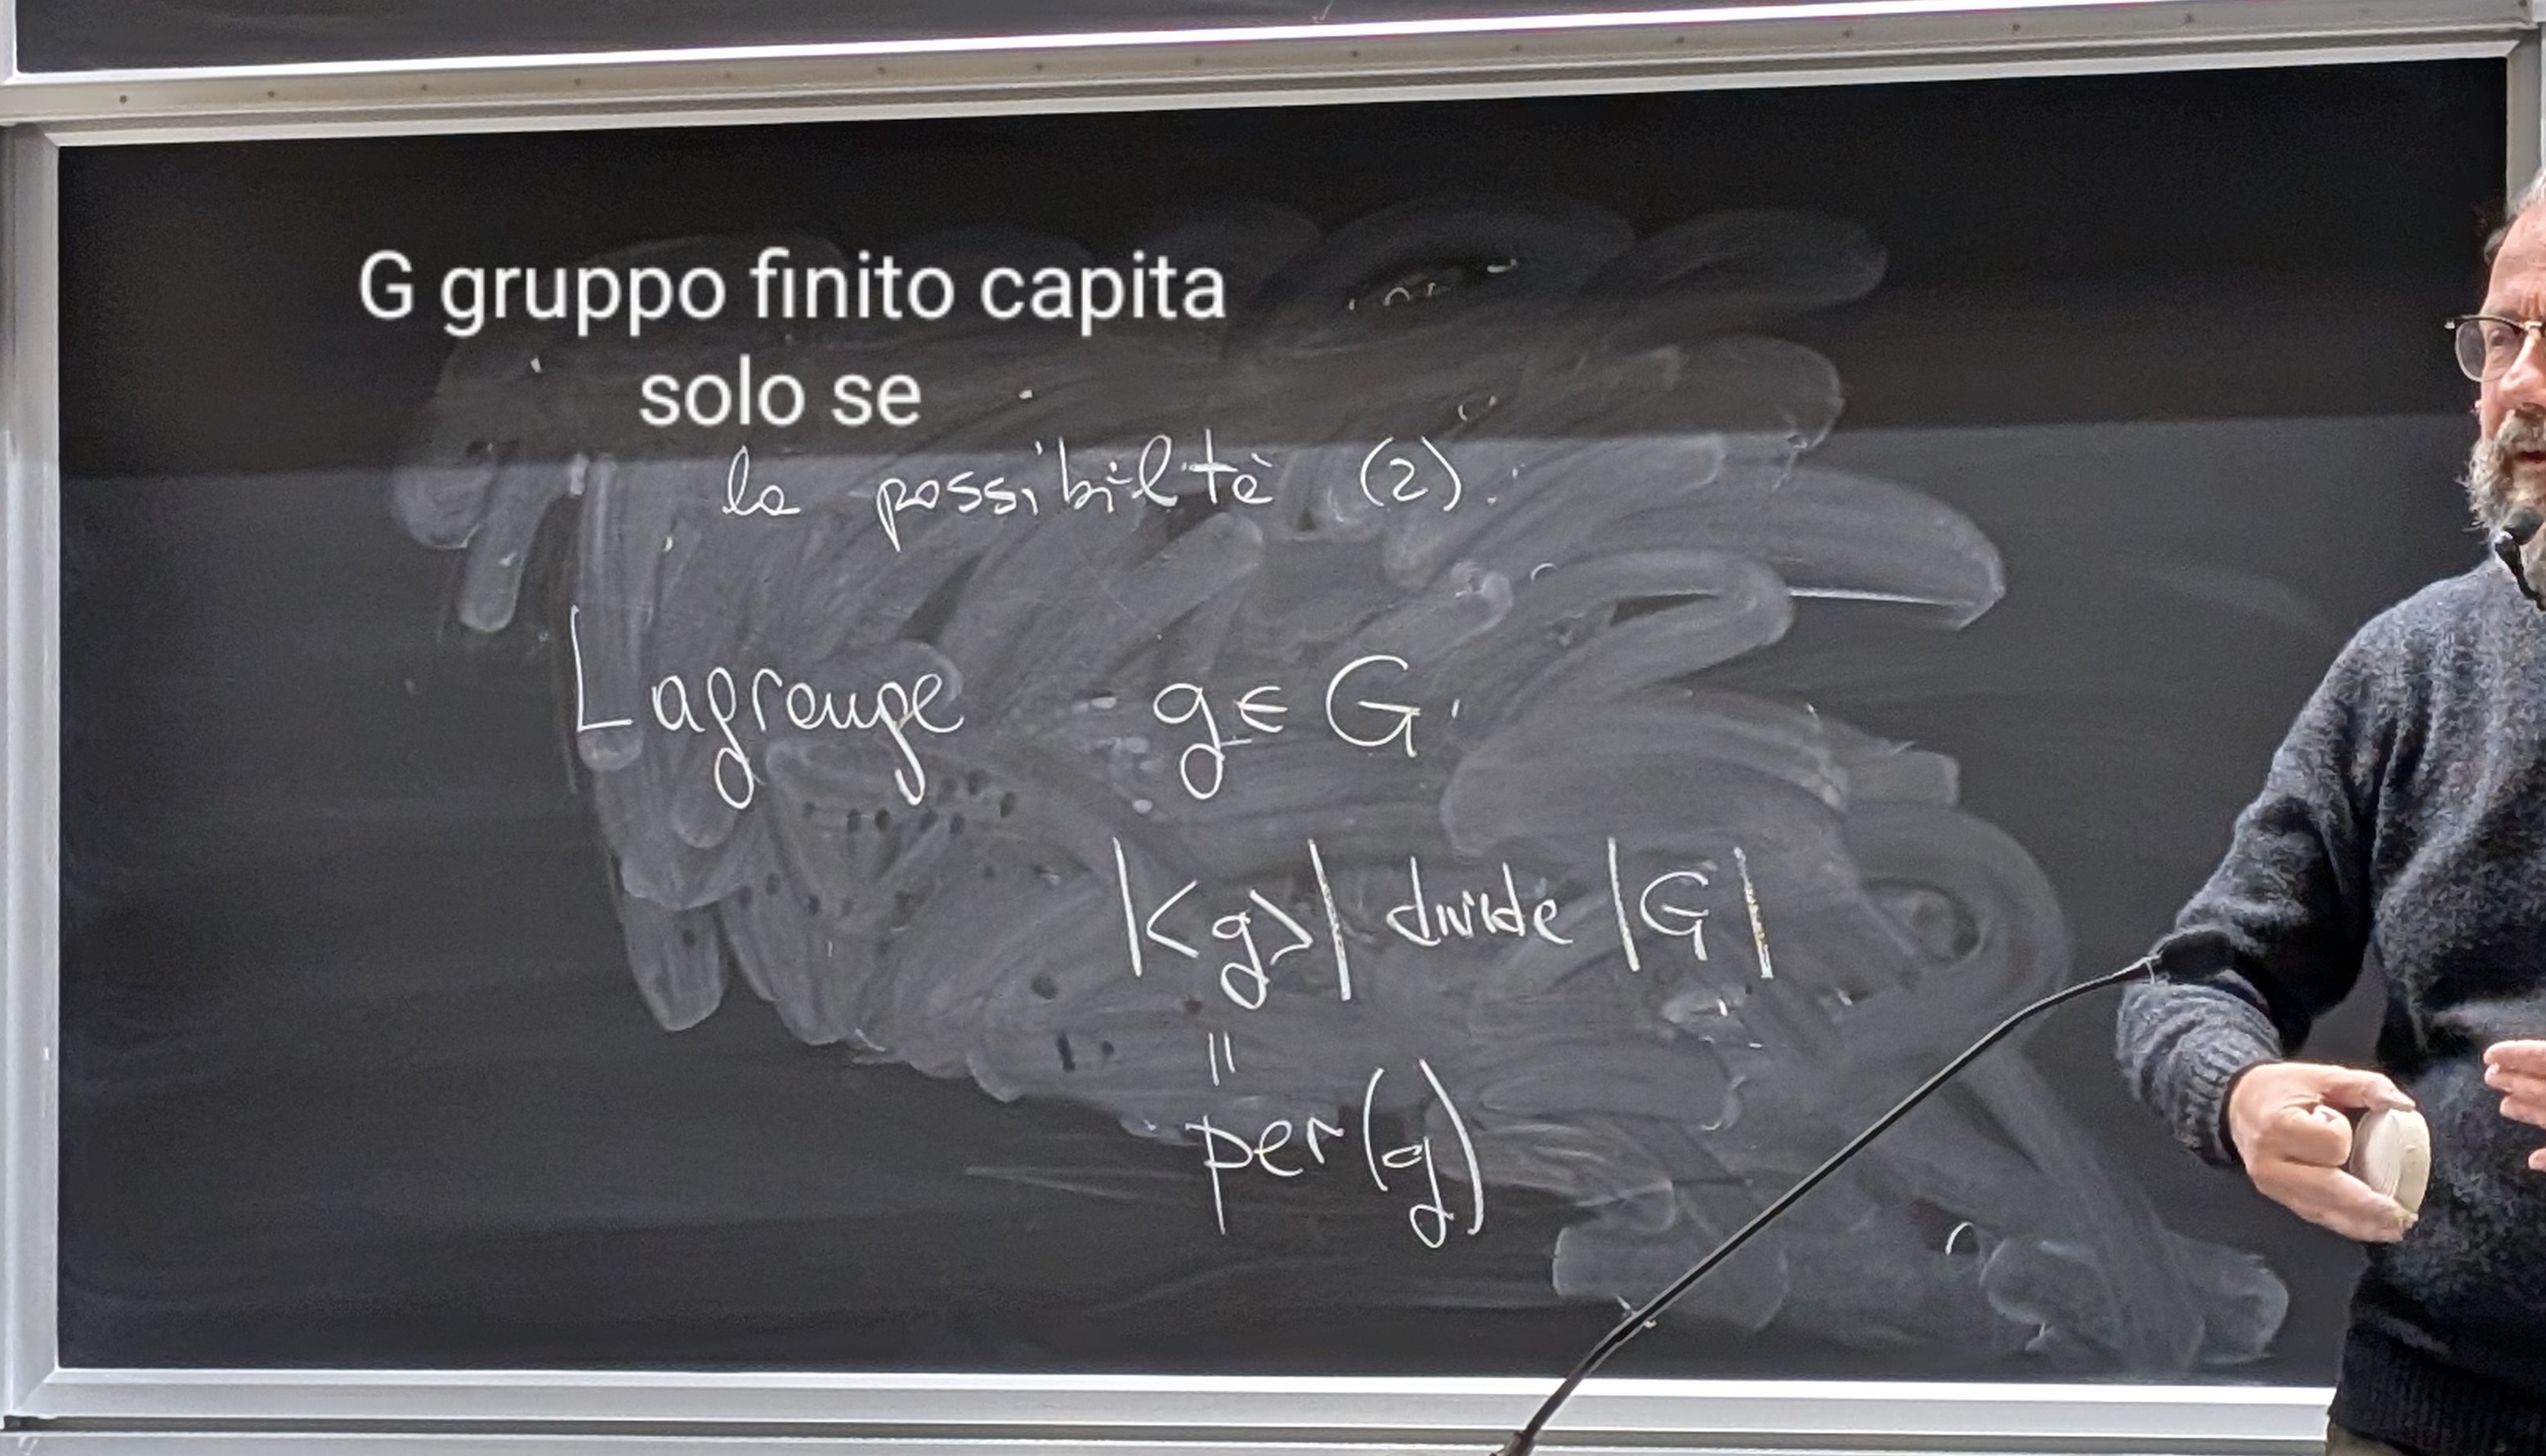 G gruppo finito capita
solo se
la possibiltà (2).
Lagrange g ∈ G
|<g>| divide |G|
||
per(g)